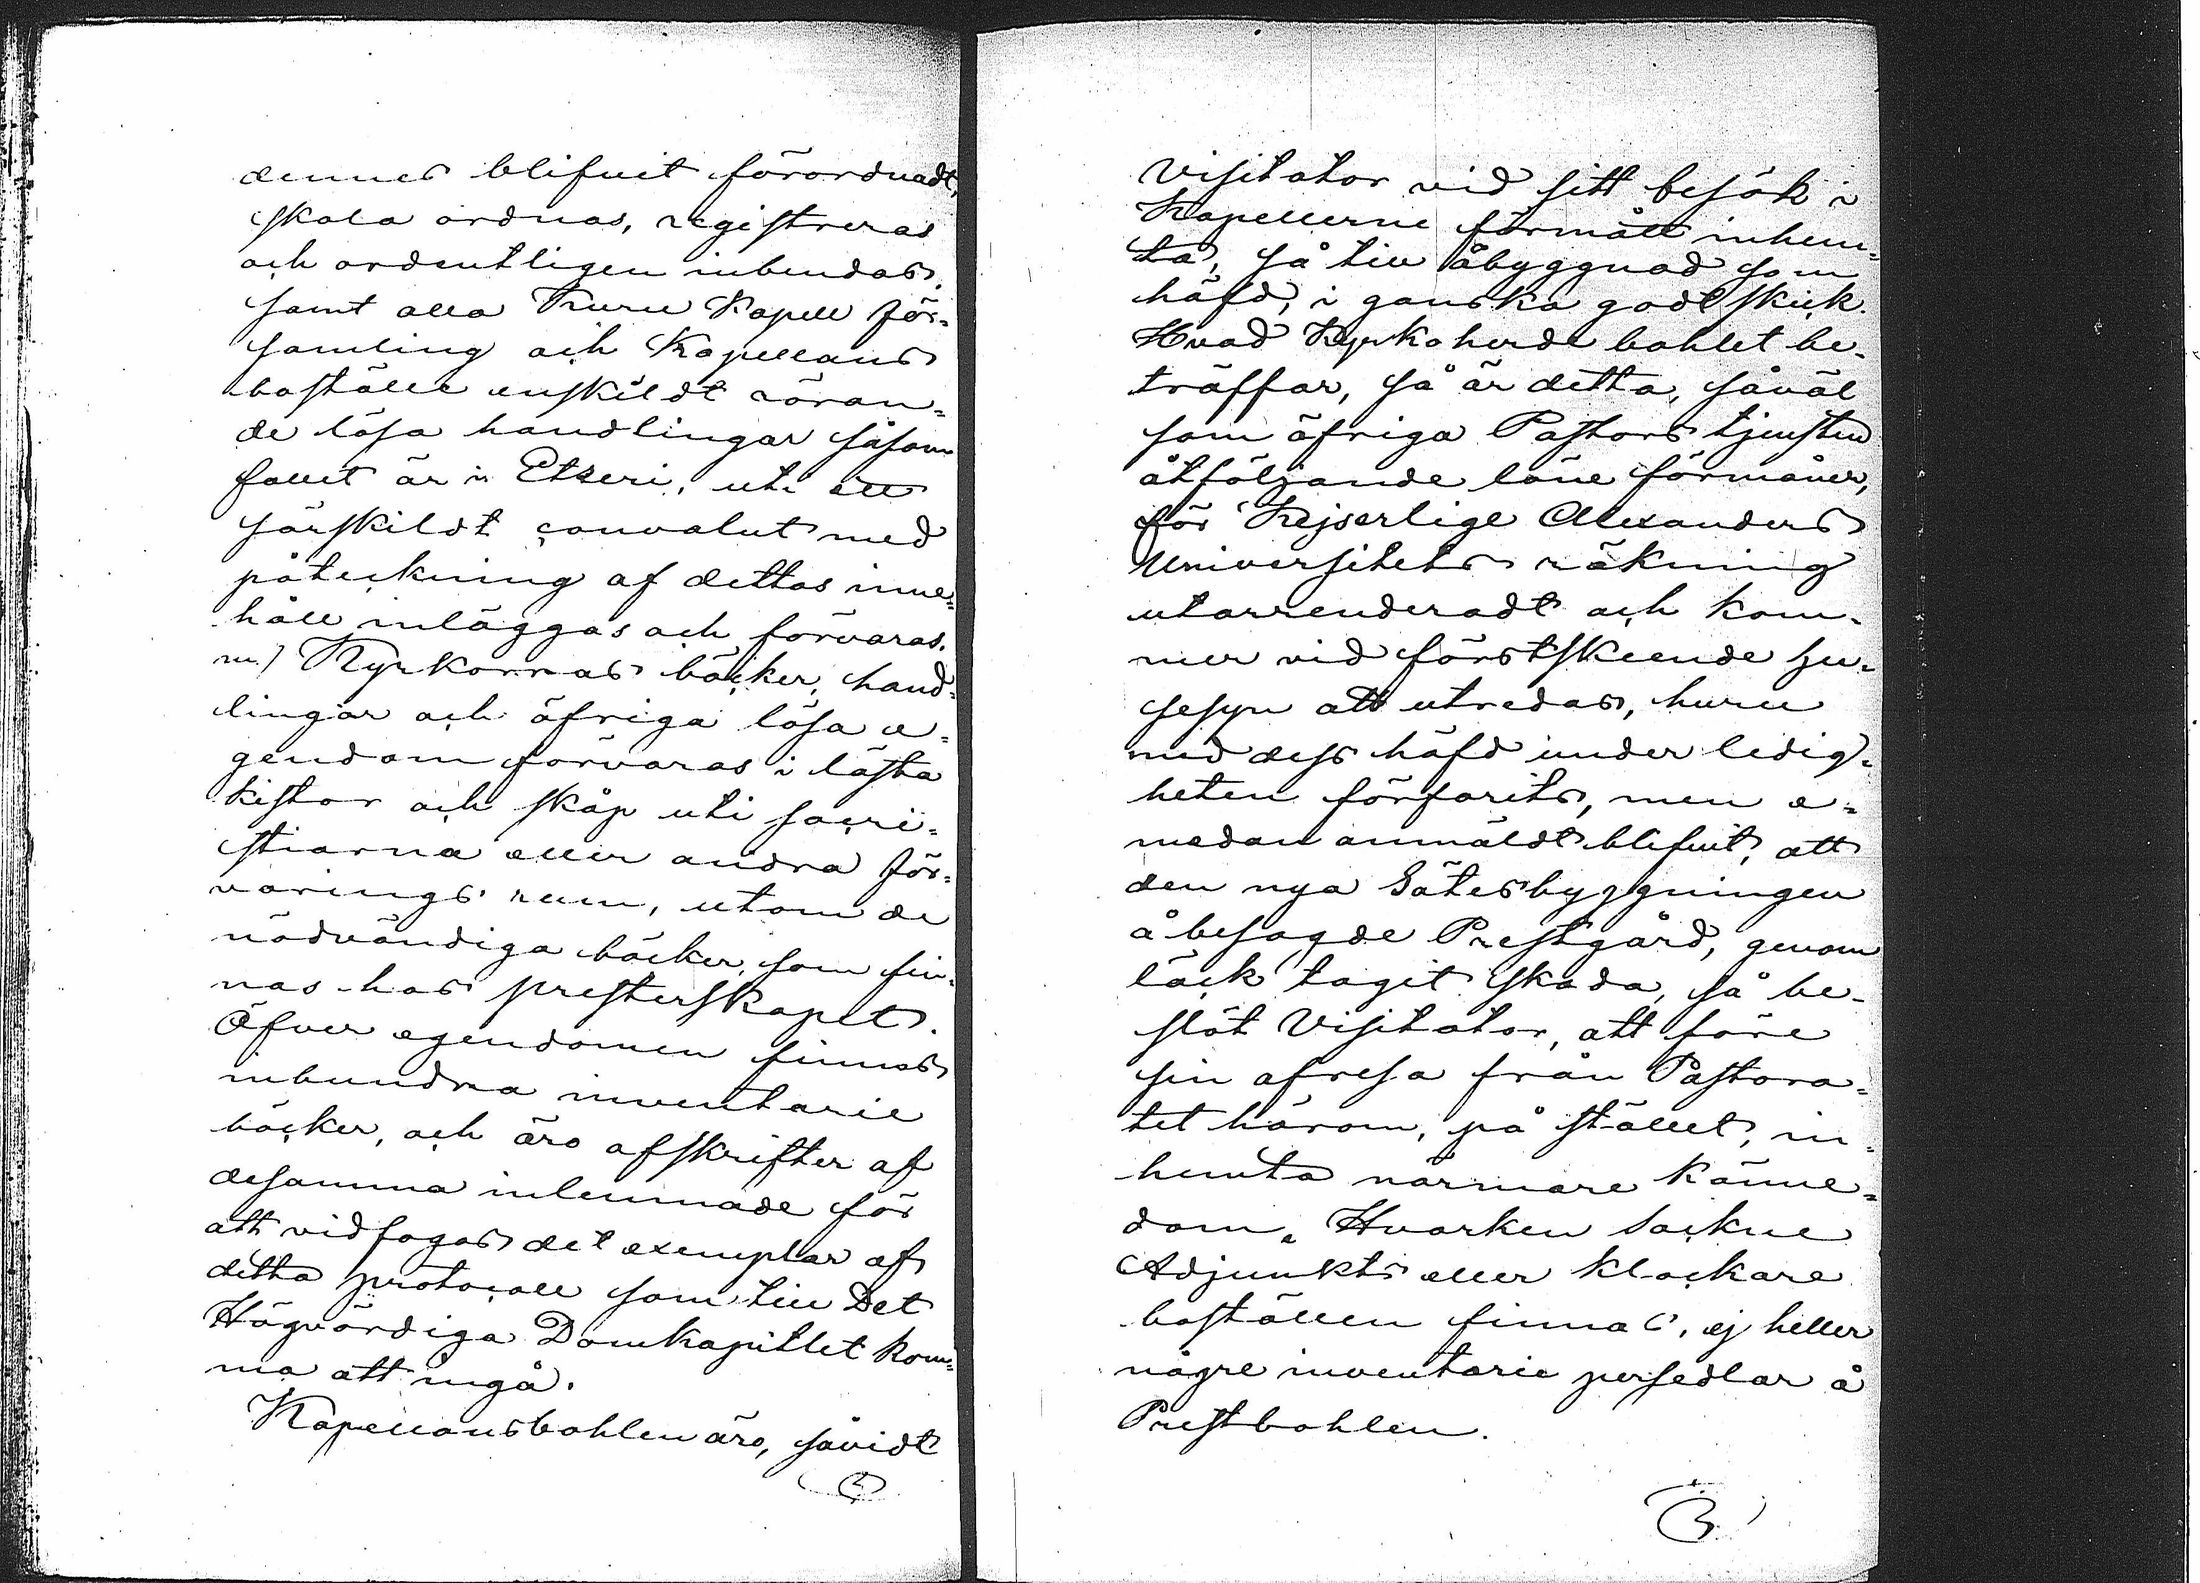 dennes blifvit förordnadt,
skola ordnas, registreras
och ordentligen inbindas,
samt alla Kuru Kapell för-
samling och Kapellans
boställe enskildt röran-
de lösa handlingar såsom
fallet är i Etseri, uti ett
särskildt convolut med
påteckning af dettas inne-
håll inläggas och förvaras.
m) Kyrkornas böcker, hand-
lingar och öfriga lösa e-
gendom förvaras i låsta
kistor och skåp uti sacri-
stiorna eller andra för-
varings rum, utom de
nödvändiga böcker, som fin-
nas hos presterskapet.
Öfver egendomen finnas
inbundna inventarie
böcker, och äro afskrifter af
desamma inlemnade för
att vidfogas det exemplar af
detta protocoll som till Det
Högvördiga Domkapitlet kom-
ma att ingå.
Kapellansbohlen äro, såvidt
Visitator vid sitt besök i
Kapellerne förmått inhem-
ta, så till åbyggnad som
häfd, i ganska godt skick.
Hvad Kyrkoherde bohlet be-
träffar, så är detta, såväl
som öfriga Pastors tjensten
åtföljande löne förmåner,
för Kejserlige Alexanders
Universitets räkning
utarrenderadt och kom-
mer vid förstskeende hu-
sesyn att utredas, huru
med dess häfd under ledig-
heten förfarits, men e-
medan anmäldt blifvit, att
den nya Sätesbyggningen
å besagde Prestgård, genom
läck tagit skada, så be-
slöt Visitator, att före
sin afresa från Pastora-
tet härom, på stället, in-
hemta närmare känne-
dom. Hvarken Sockne
Adjunkts eller klockare
boställen finnas, ej heller
någre inventarie persedlar å
Prestbohlen.